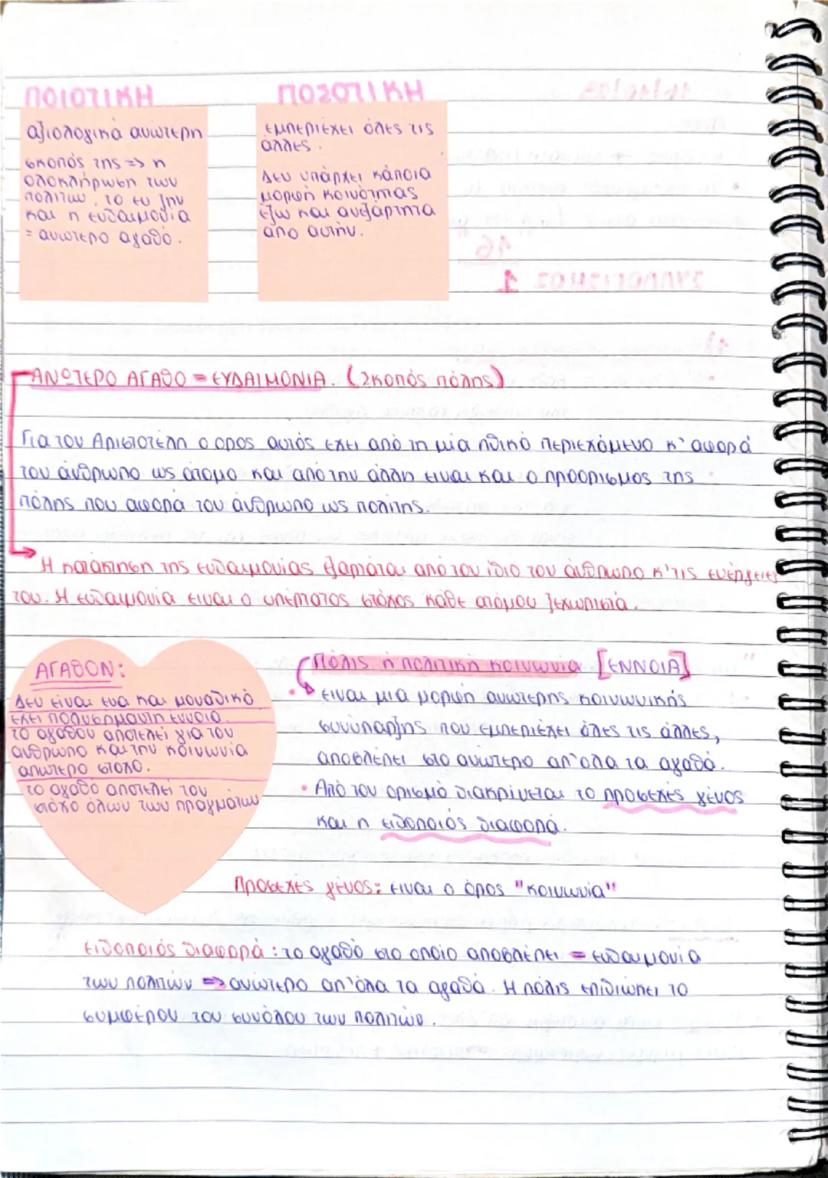 ΠΟΙΟΤΙΚΗ
αξιολογικά ανώτερη
σκοπός της => η
ολοκλήρωση των
πολιτών, το ευ ζην
και η ευδαιμονία
= ανώτερο αγαθό.
ΠΟΣΟΤΙΚΗ
εμπεριέχει όλες τις
άλλες.
Δεν υπάρχει κάποια
μορφή κοινότητας
έξω και ανεξάρτητα
από αυτήν.
ΑΝΩΤΕΡΟ ΑΓΑΘΟ = ΕΥΔΑΙΜΟΝΙΑ. (Σκοπός πόλης)
Για τον Αριστοτέλη ο όρος αυτός έχει από τη μία ηθικό περιεχόμενο κ' αφορά
τον άνθρωπο ως άτομο και από την άλλη είναι και ο προορισμός της
πόλης που αφορά τον άνθρωπο ως πολίτης.
Η κατάκτηση της ευδαιμονίας εξαρτάται από τον ίδιο τον άνθρωπο κ' τις ενέργειες
του. Η ευδαιμονία είναι ο υπέρτατος στόχος κάθε ατόμου ξεχωριστά.
ΑΓΑΘΟΝ:
Δεν είναι ένα και μοναδικό
έχει πολυσήμαντη έννοια.
το αγαθόν αποτελεί για τον
άνθρωπο και την κοινωνία
απώτερο στόχο.
το αγαθό αποτελεί τον
στόχο όλων των πραγμάτων
Πόλις ή πολιτική κοινωνία [ΕΝΝΟΙΑ]
είναι μια μορφή ανώτερης κοινωνικής
συνύπαρξης που εμπεριέχει όλες τις άλλες,
αποβλέπει στο ανώτερο απ' όλα τα αγαθά.
• Από τον ορισμό διακρίνεται το προσεχές γένος
και η ειδοποιός διαφορά.
Προσεχές γένος: είναι ο όρος "κοινωνία"
ειδοποιός διαφορά: το αγαθό στο οποίο αποβλέπει = ευδαιμονία
των πολιτών => ανώτερο απ' όλα τα αγαθά. Η πόλις επιδιώκει το
συμφέρον του συνόλου των πολιτών.